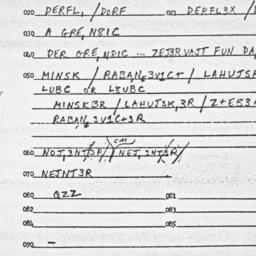 020 DERFL, /DORF 021 DERFL3X /
030 A GRE, N8IC
040 DER GRE, NDIC ... ZE18RVAJT FUN DA,
050 MINSK / RABAN, 3V1C+ / LAHUTSK
LUBC OR L8UBC
MINSK3R / LAHUJSK, 3R / Z+EB3
RABAN, 3V1C+3R
060 NOJ, 3NTOF / NEJ, 3NTOR /
070 NEJNT3R
080 QZZ 081
082 083
084 085
090 —